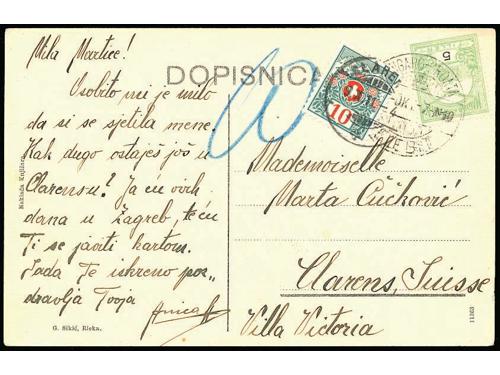 Mila Martice!
DOPISNICA
Osobito mi je milo
da si se sjetila mene.
Kak dugo ostaješ još u
Clarensu? Ja ću ovih
dana u Zagreb, te ću
Ti se javiti kartom.
Sada Te iskreno poz-
dravlja Tvoja
Anica
10
5
Mademoiselle
Marta Čučković
Clarens, Suisse
Villa Victoria
Naklada Knjižara
G. Sikić, Rieka.
11363